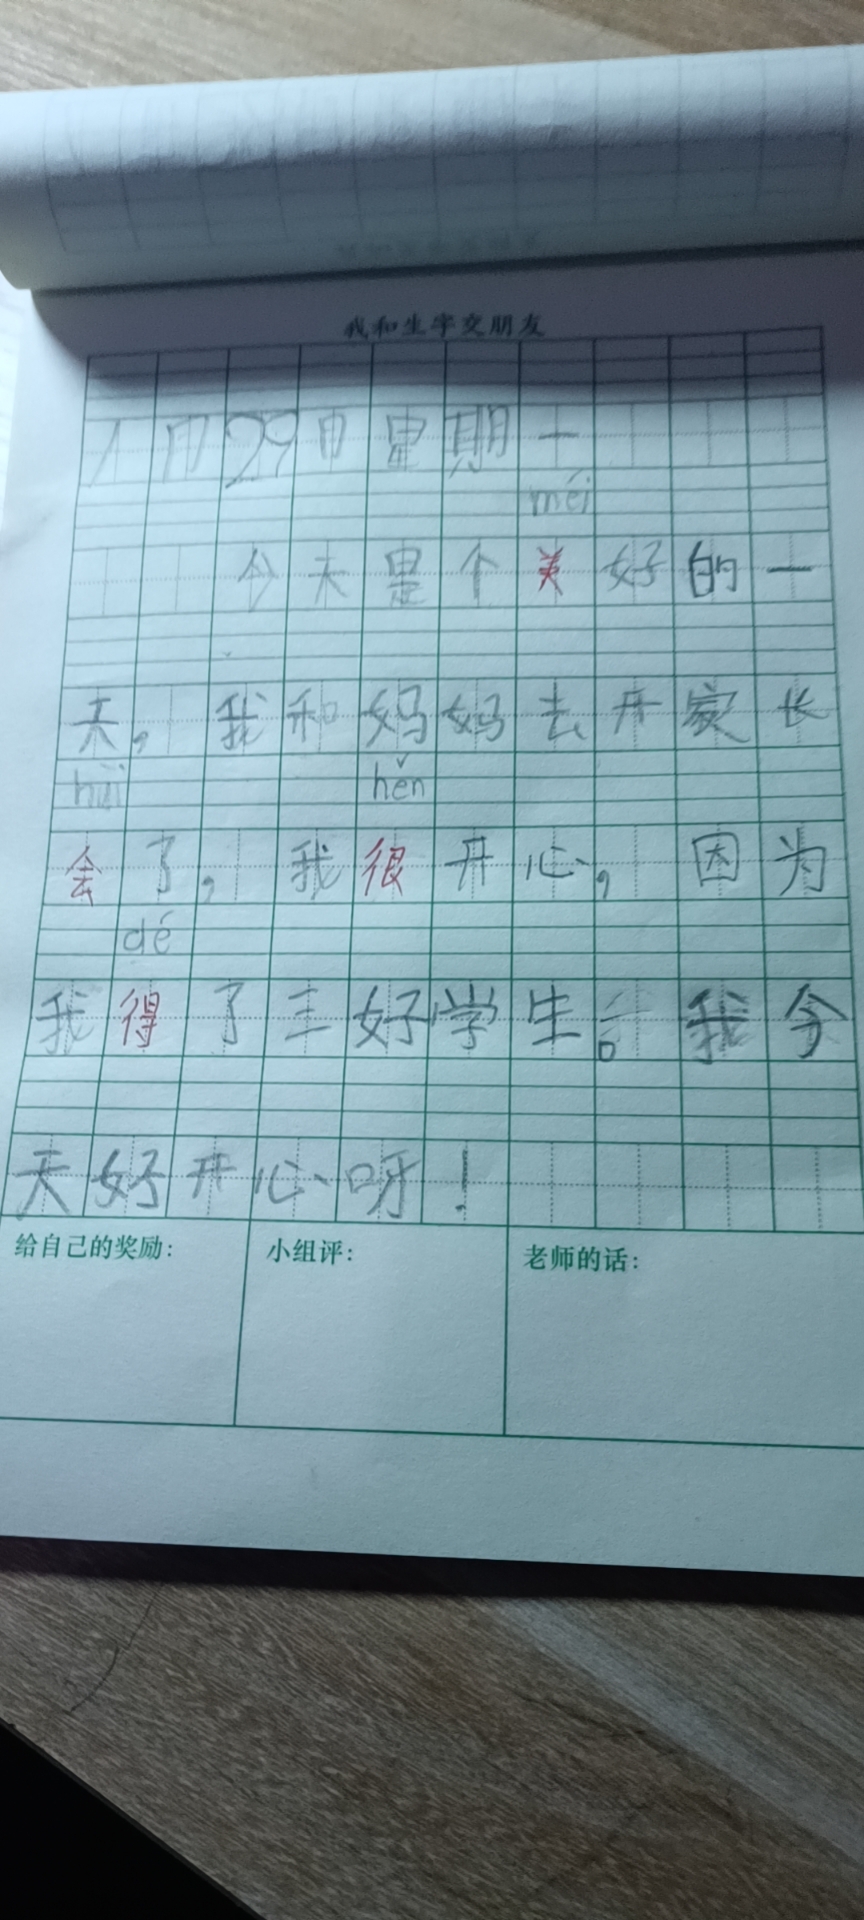 我和生字交朋友
1月29日星期一
méi
今天是个美好的一
天,我和妈妈去开家长
hùi hěn
会了,我很开心,因为
dé
我得了三好学生。我今
天好开心呀!
给自己的奖励: 小组评: 老师的话: